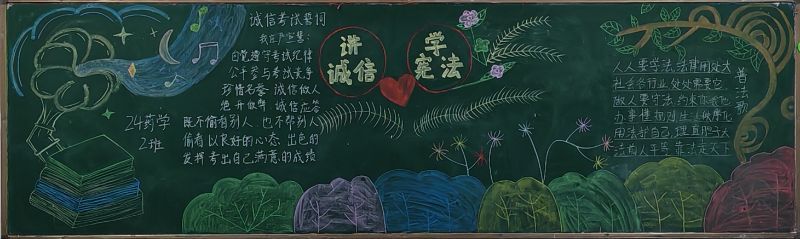 诚信考试要词
我庄严宣誓:
自觉遵守考试纪律
公平参与考试竞争
珍惜名誉 诚信做人
绝不做弊 诚信应答
既不偷看别人 也不帮别人
偷看 以良好的心态 出色的
发挥 考出自己满意的成绩
24药学
2班
讲
诚信
学
宪法
普法歌
人人要学法 法律用处大
社会各行业 处处需要它
做人要守法 约束你我他
办事懂
用法护自己 理直胆子大
法前人平等 靠法走天下